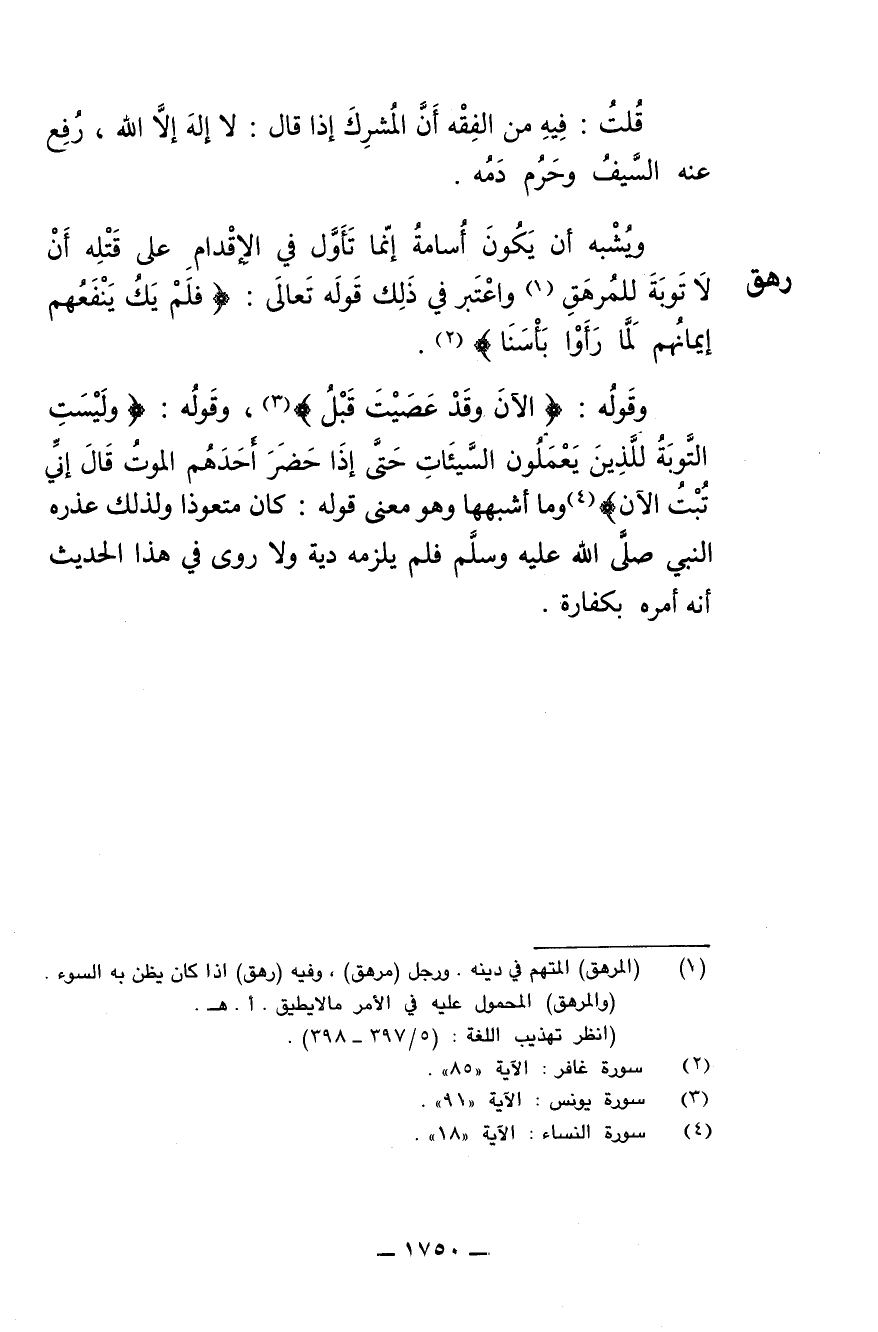 قُلتُ : فِيهِ من الفِقْه أَنَّ المُشرِكَ إذا قال : لا إلهَ إلَّا الله ، رُفِع
عنه السَّيفُ وحَرُم دَمُه .
ويُشْبه أن يَكُونَ أُسامةُ إنّما تَأَوَّل في الإقْدامِ على قَتْلِه أَنْ
رهق
لَا تَوبَةَ للمُرهَقِ (١) واعْتَبر في ذَلِك قَولَه تَعالَى : ﴿ فلَمْ يَكُ يَنْفَعُهم
إيمانُهم لَمَّا رَأَوْا بَأْسَنَا ﴾ (٢) .
وقَولُه : ﴿ الآنَ وقَدْ عَصَيْتَ قَبْلُ ﴾(٣) ، وقَولُه : ﴿ ولَيْسَتِ
التَّوبَةُ للَّذِينَ يَعْمَلُون السَّيئَاتِ حَتَّى إذَا حَضَرَ أَحَدَهُم الموتُ قَالَ إنيِّ
تُبْتُ الآن﴾(٤)وما أشبهها وهو معنى قوله : كان متعوذا ولذلك عذره
النبي صلَّى الله عليه وسلَّم فلم يلزمه دية ولا روى في هذا الحديث
أنه أمره بكفارة .
(١) (المرهق) المتهم في دينه . ورجل (مرهق) ، وفيه (رهق) اذا كان يظن به السوء .
(والمرهق) المحمول عليه في الأمر مالايطيق . أ . هـ .
(انظر تهذيب اللغة : (٣٩٧/٥ – ٣٩٨) .
(٢) سورة غافر : الآية «٨٥» .
(٣) سورة يونس : الآية «٩١» .
(٤) سورة النساء : الآية «١٨» .
– ١٧٥٠ –